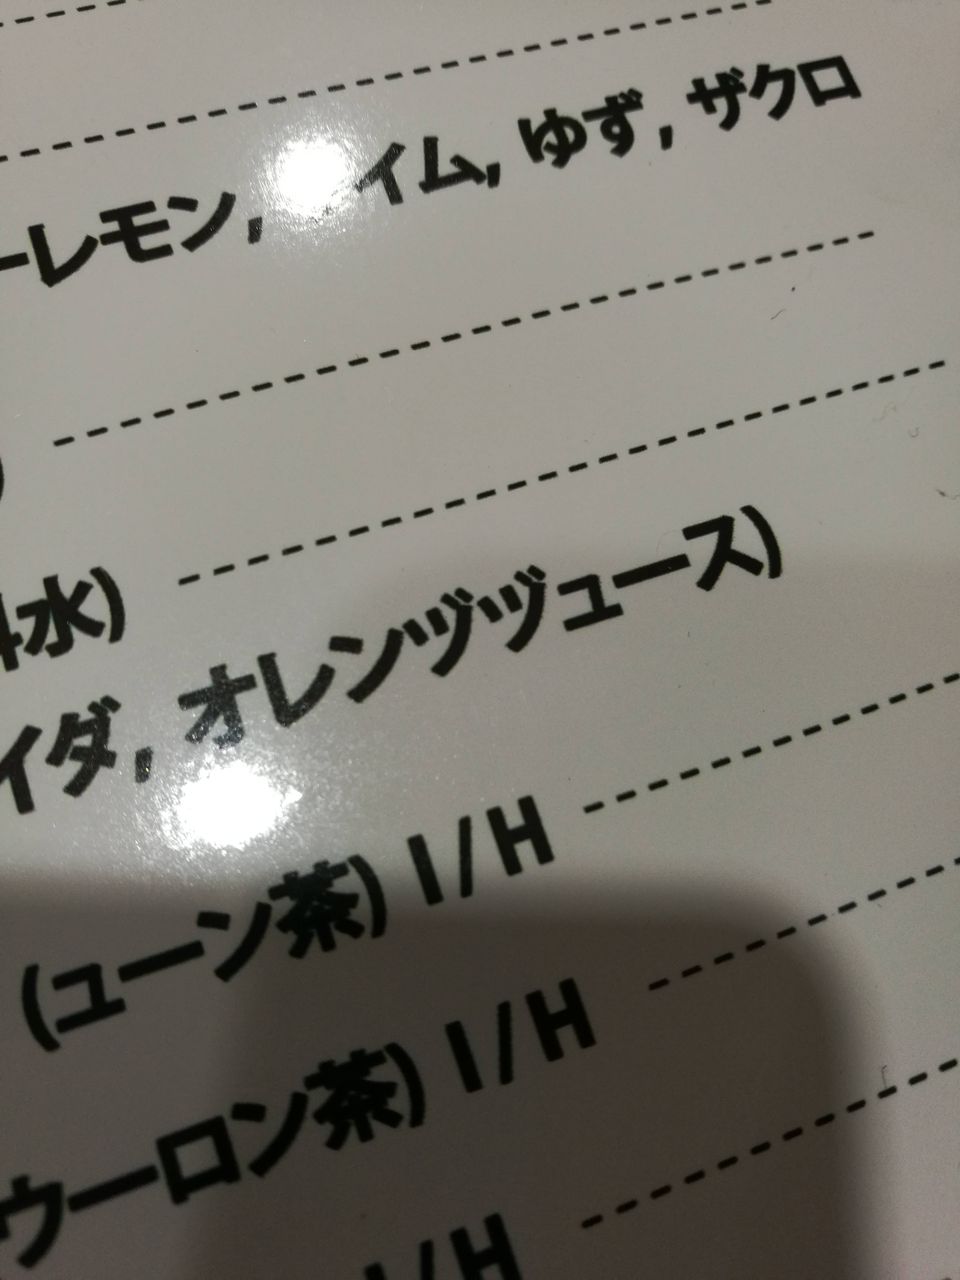 ーレモン, イム, ゆず, ザクロ
水)
イダ, オレンヅヅュース)
(ユーン茶) I/H
ウーロン茶) I/H
I/H